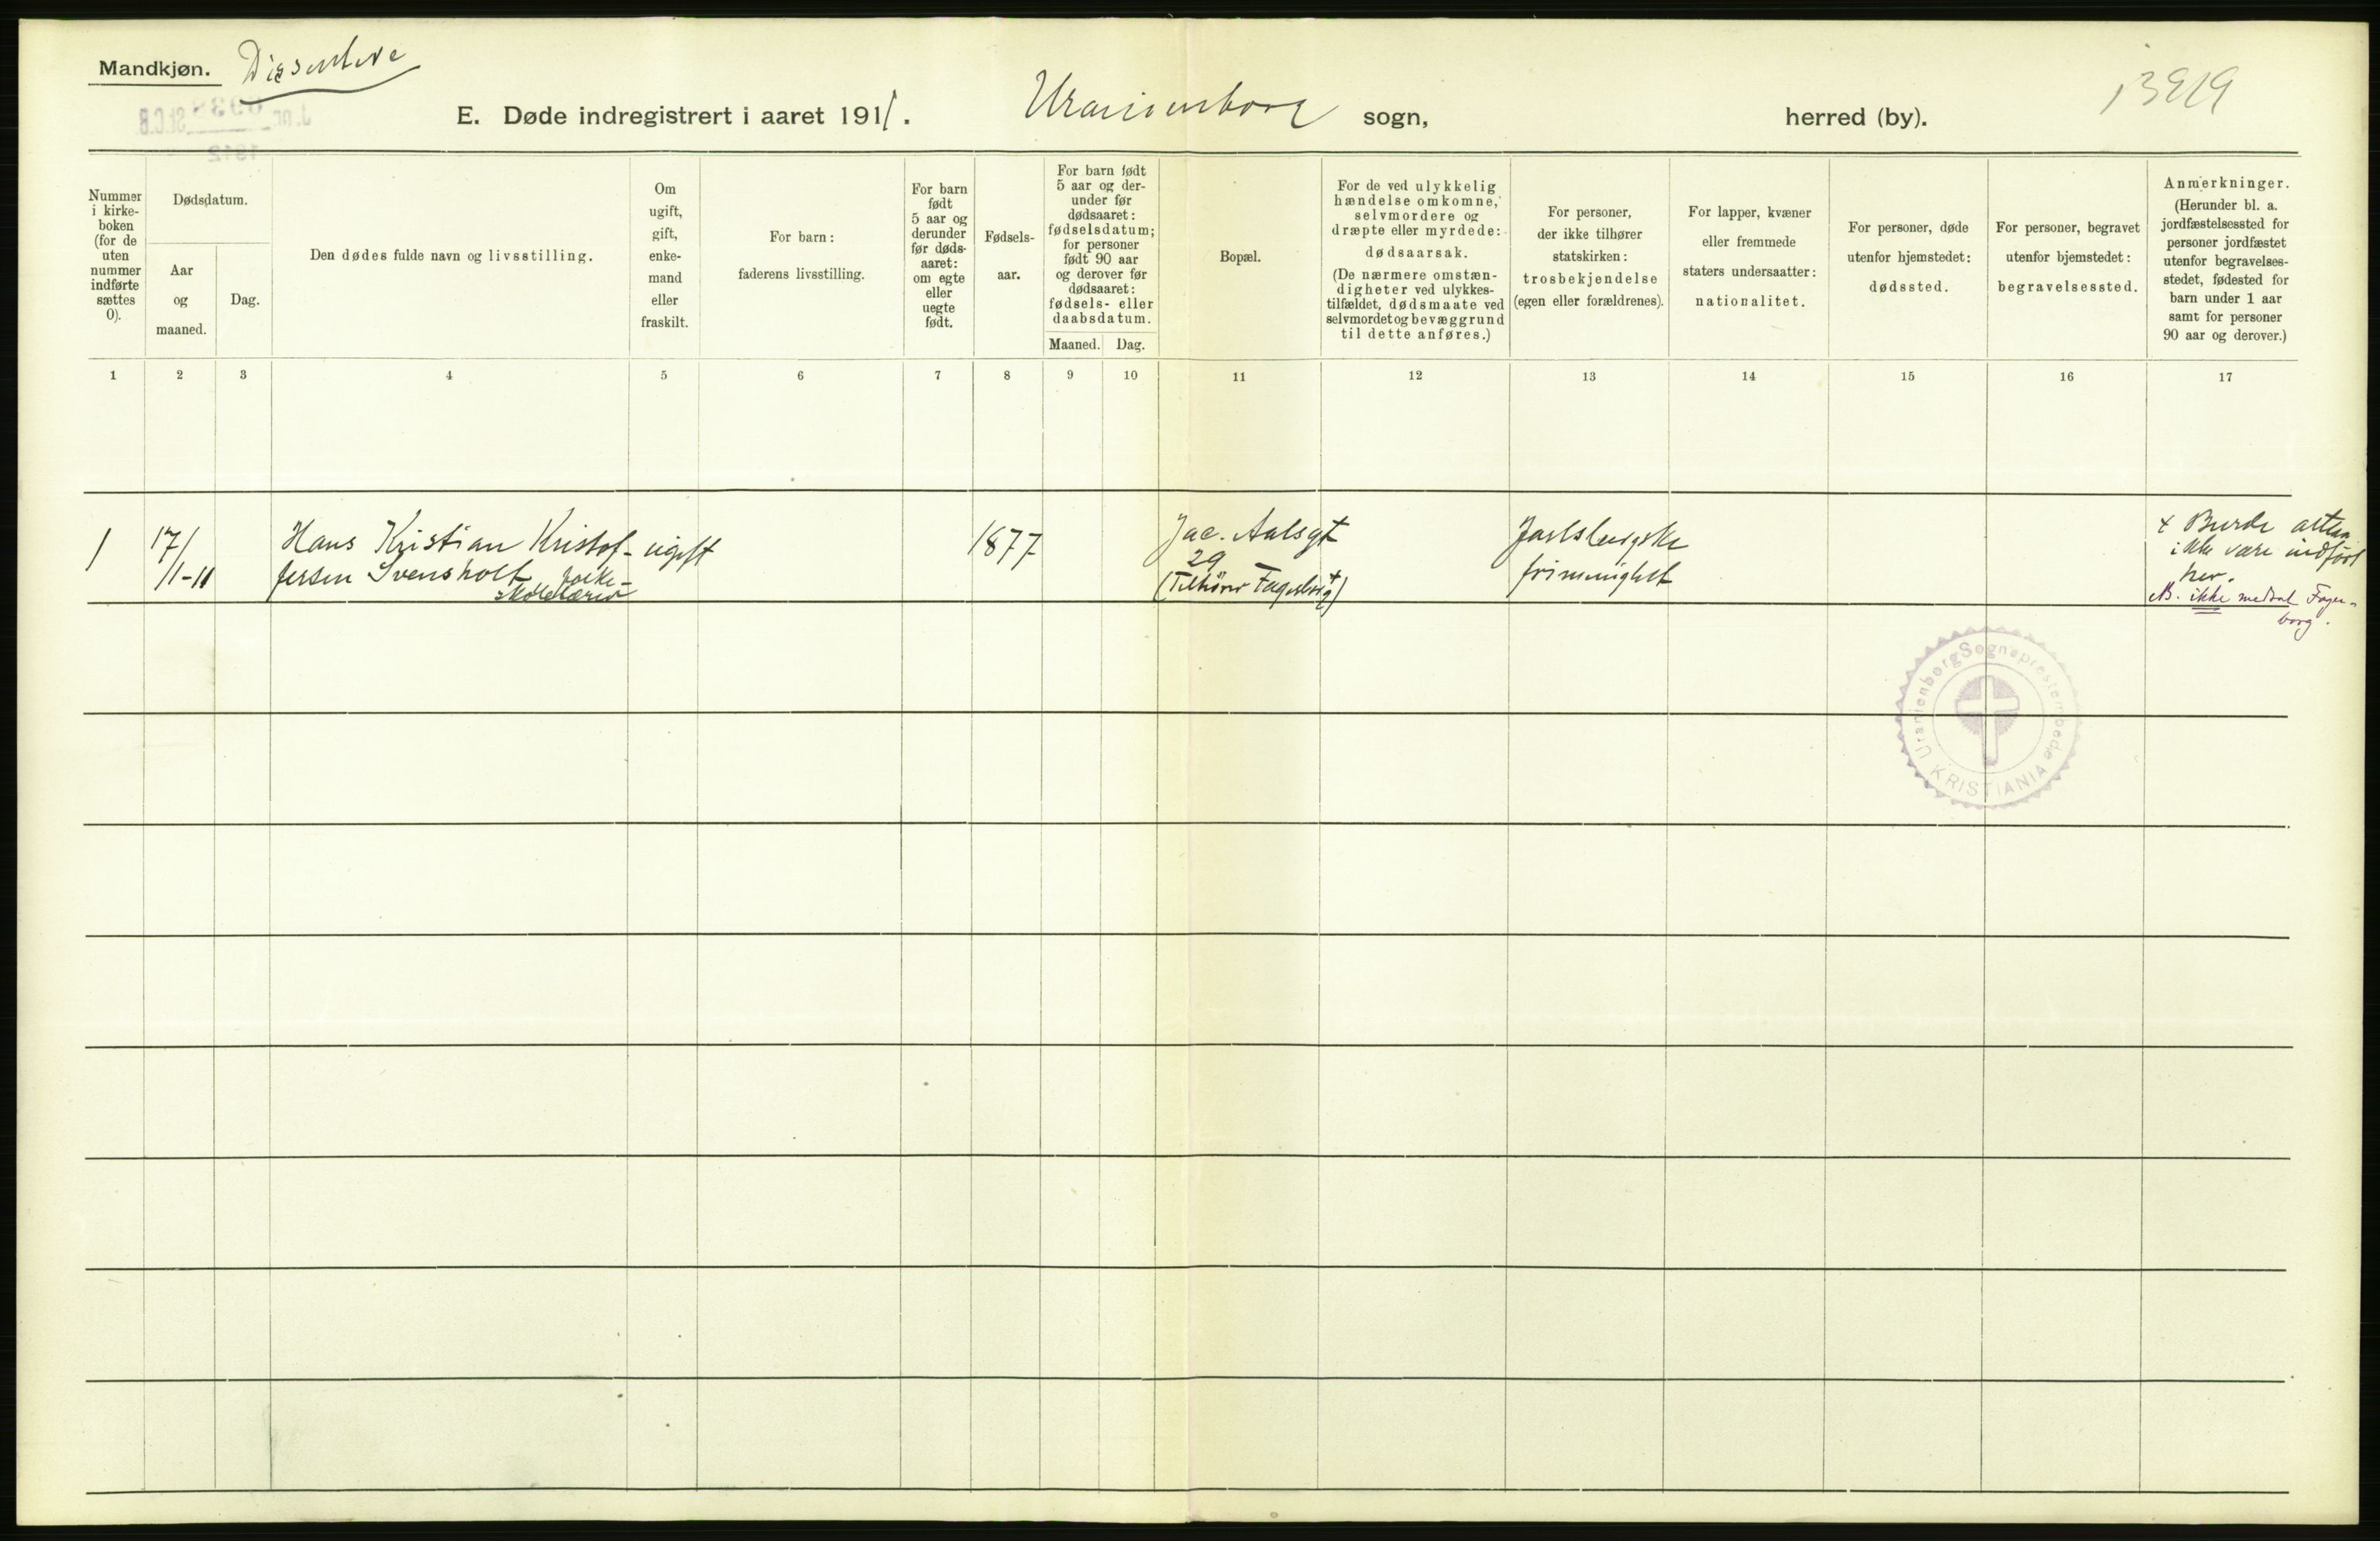 Mandkjøn. Dissentere
E. Døde indregistrert i aaret 1911. Uranienborg sogn, herred (by).
Nummer i kirke- boken (for de uten nummer indførte sættes 0).
Dødsdatum.
Aar og maaned.
Dag.
Den dødes fulde navn og livsstilling.
Om ugift, gift, enke- mand eller fraskilt.
For barn: faderens livsstilling.
For barn født 5 aar og derunder før døds- aaret: om egte eller uegte født.
Fødsels- aar.
For barn født 5 aar og der- under før dødsaaret: fødselsdatum; for personer født 90 aar og derover før dødsaaret: fødsels- eller daabsdatum.
Maaned. Dag.
Bopæl.
For de ved ulykkelig hændelse omkomne, selvmordere og dræpte eller myrdede: dødsaarsak. (De nærmere omstæn- digheter ved ulykkes- tilfældet, dødsmaate ved selvmordet og bevæggrund til dette anføres.)
For personer, der ikke tilhører statskirken: trosbekjendelse (egen eller forældrenes).
For lapper, kvæner eller fremmede staters undersaatter: nationalitet.
For personer, døde utenfor hjemstedet: dødssted.
For personer, begravet utenfor hjemstedet: begravelsessted.
Anmerkninger. (Herunder bl. a. jordfæstelsessted for personer jordfæstet utenfor begravelses- stedet, fødested for barn under 1 aar samt for personer 90 aar og derover.)
1 2 3 4 5 6 7 8 9 10 11 12 13 14 15 16 17
1 17/1-11 Hans Kristian Kristof- ugift 1877 Jac. Aalsgt Jarlsbergske + Burde
fersen Svensholt folke- 29 frimenighet ikke være indført
skolelærer (Tilhører Fagerborg +) her.
NB. ikke medtat Fager-
borg.
Uranienborg Sogneprestembede
KRISTIANIA